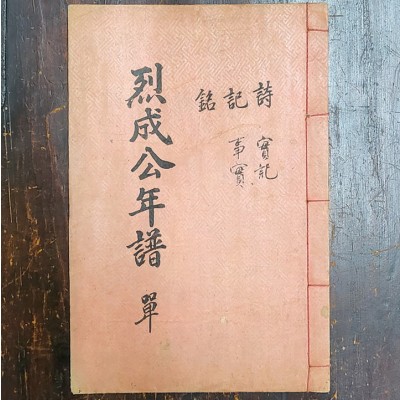 詩 實記
記 事實
銘
烈成公年譜 單